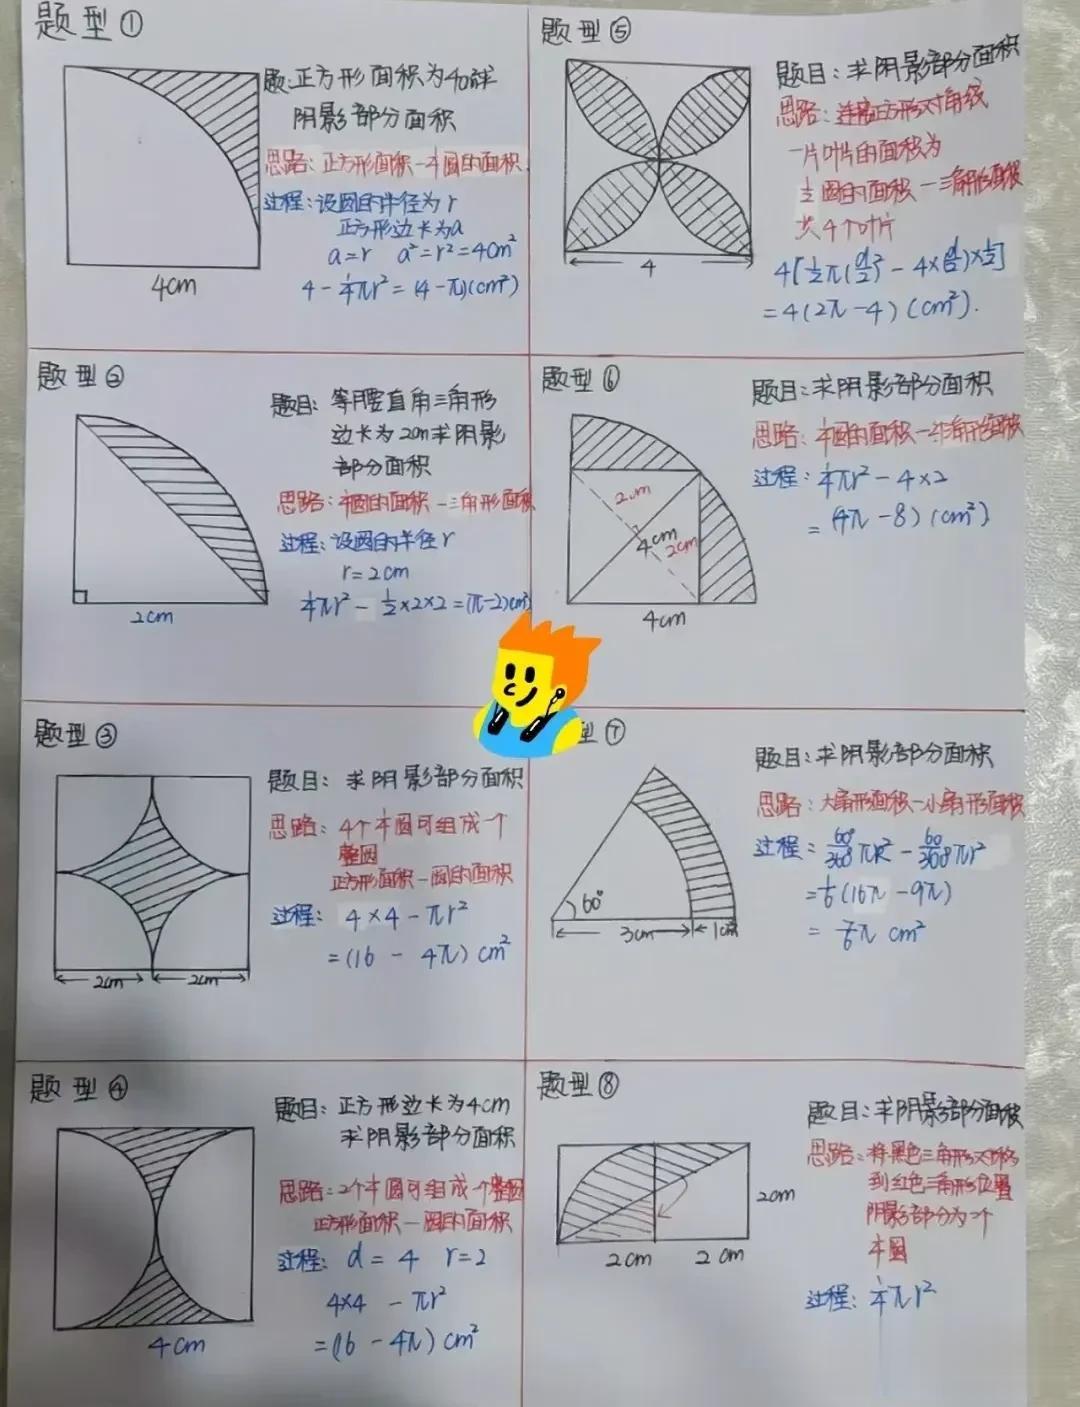 题型①
题:正方形面积为4cm²求
阴影部分面积
思路:正方形面积-¼圆的面积
过程:设圆的半径为r
正方形边长为a
a=r a²=r²=4cm²
4-¼πr²=(4-π)(cm²)
4cm
题型②
题目:等腰直角三角形
边长为2cm求阴影
部分面积
思路:¼圆的面积-三角形面积
过程:设圆的半径r
r=2cm
¼πr²-½×2×2=(π-2)cm²
2cm
题型③
题目:求阴影部分面积
思路:4个¼圆可组成一个
整圆
正方形面积-圆的面积
过程:4×4-πr²
=(16-4π)cm²
2cm 2cm
题型④
题目:正方形边长为4cm
求阴影部分面积
思路:2个半圆可组成一个整圆
正方形面积-圆的面积
过程:d=4 r=2
4×4-πr²
=(16-4π)cm²
4cm
题型⑤
题目:求阴影部分面积
思路:连接正方形对角线
一片叶片的面积为
½圆的面积-三角形面积
共4个叶片
4[½π(d/2)²-4×(d/2)×½]
=4(2π-4)(cm²).
4
题型⑥
题目:求阴影部分面积
思路:¼圆的面积-
过程:¼πr²-4×2
=(4π-8)(cm²)
2cm
4cm
2cm
4cm
型⑦
题目:求阴影部分面积
思路:大扇形面积-小扇形面积
过程=60°/360°πR²-60/360°πr²
=⅙(16π-9π)
=7/6π cm²
60°
3cm 1cm
题型⑧
题目:求阴影部分面积
思路:将黑色三角形对移
到红色三角形位置
阴影部分为一个
¼圆
过程:¼πr²
2cm
2cm 2cm